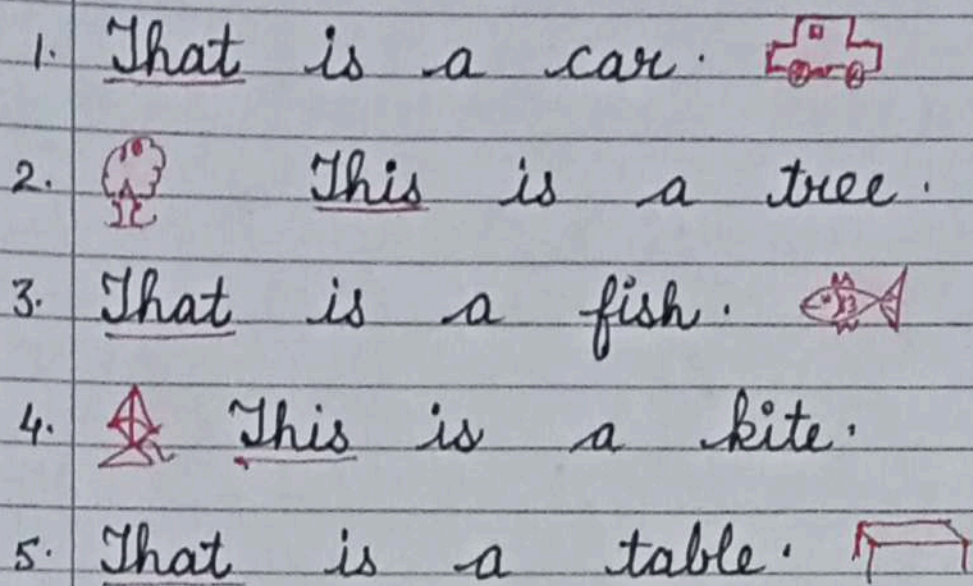 1. That is a car.
2. This is a tree.
3. That is a fish.
4. This is a kite.
5. That is a table.